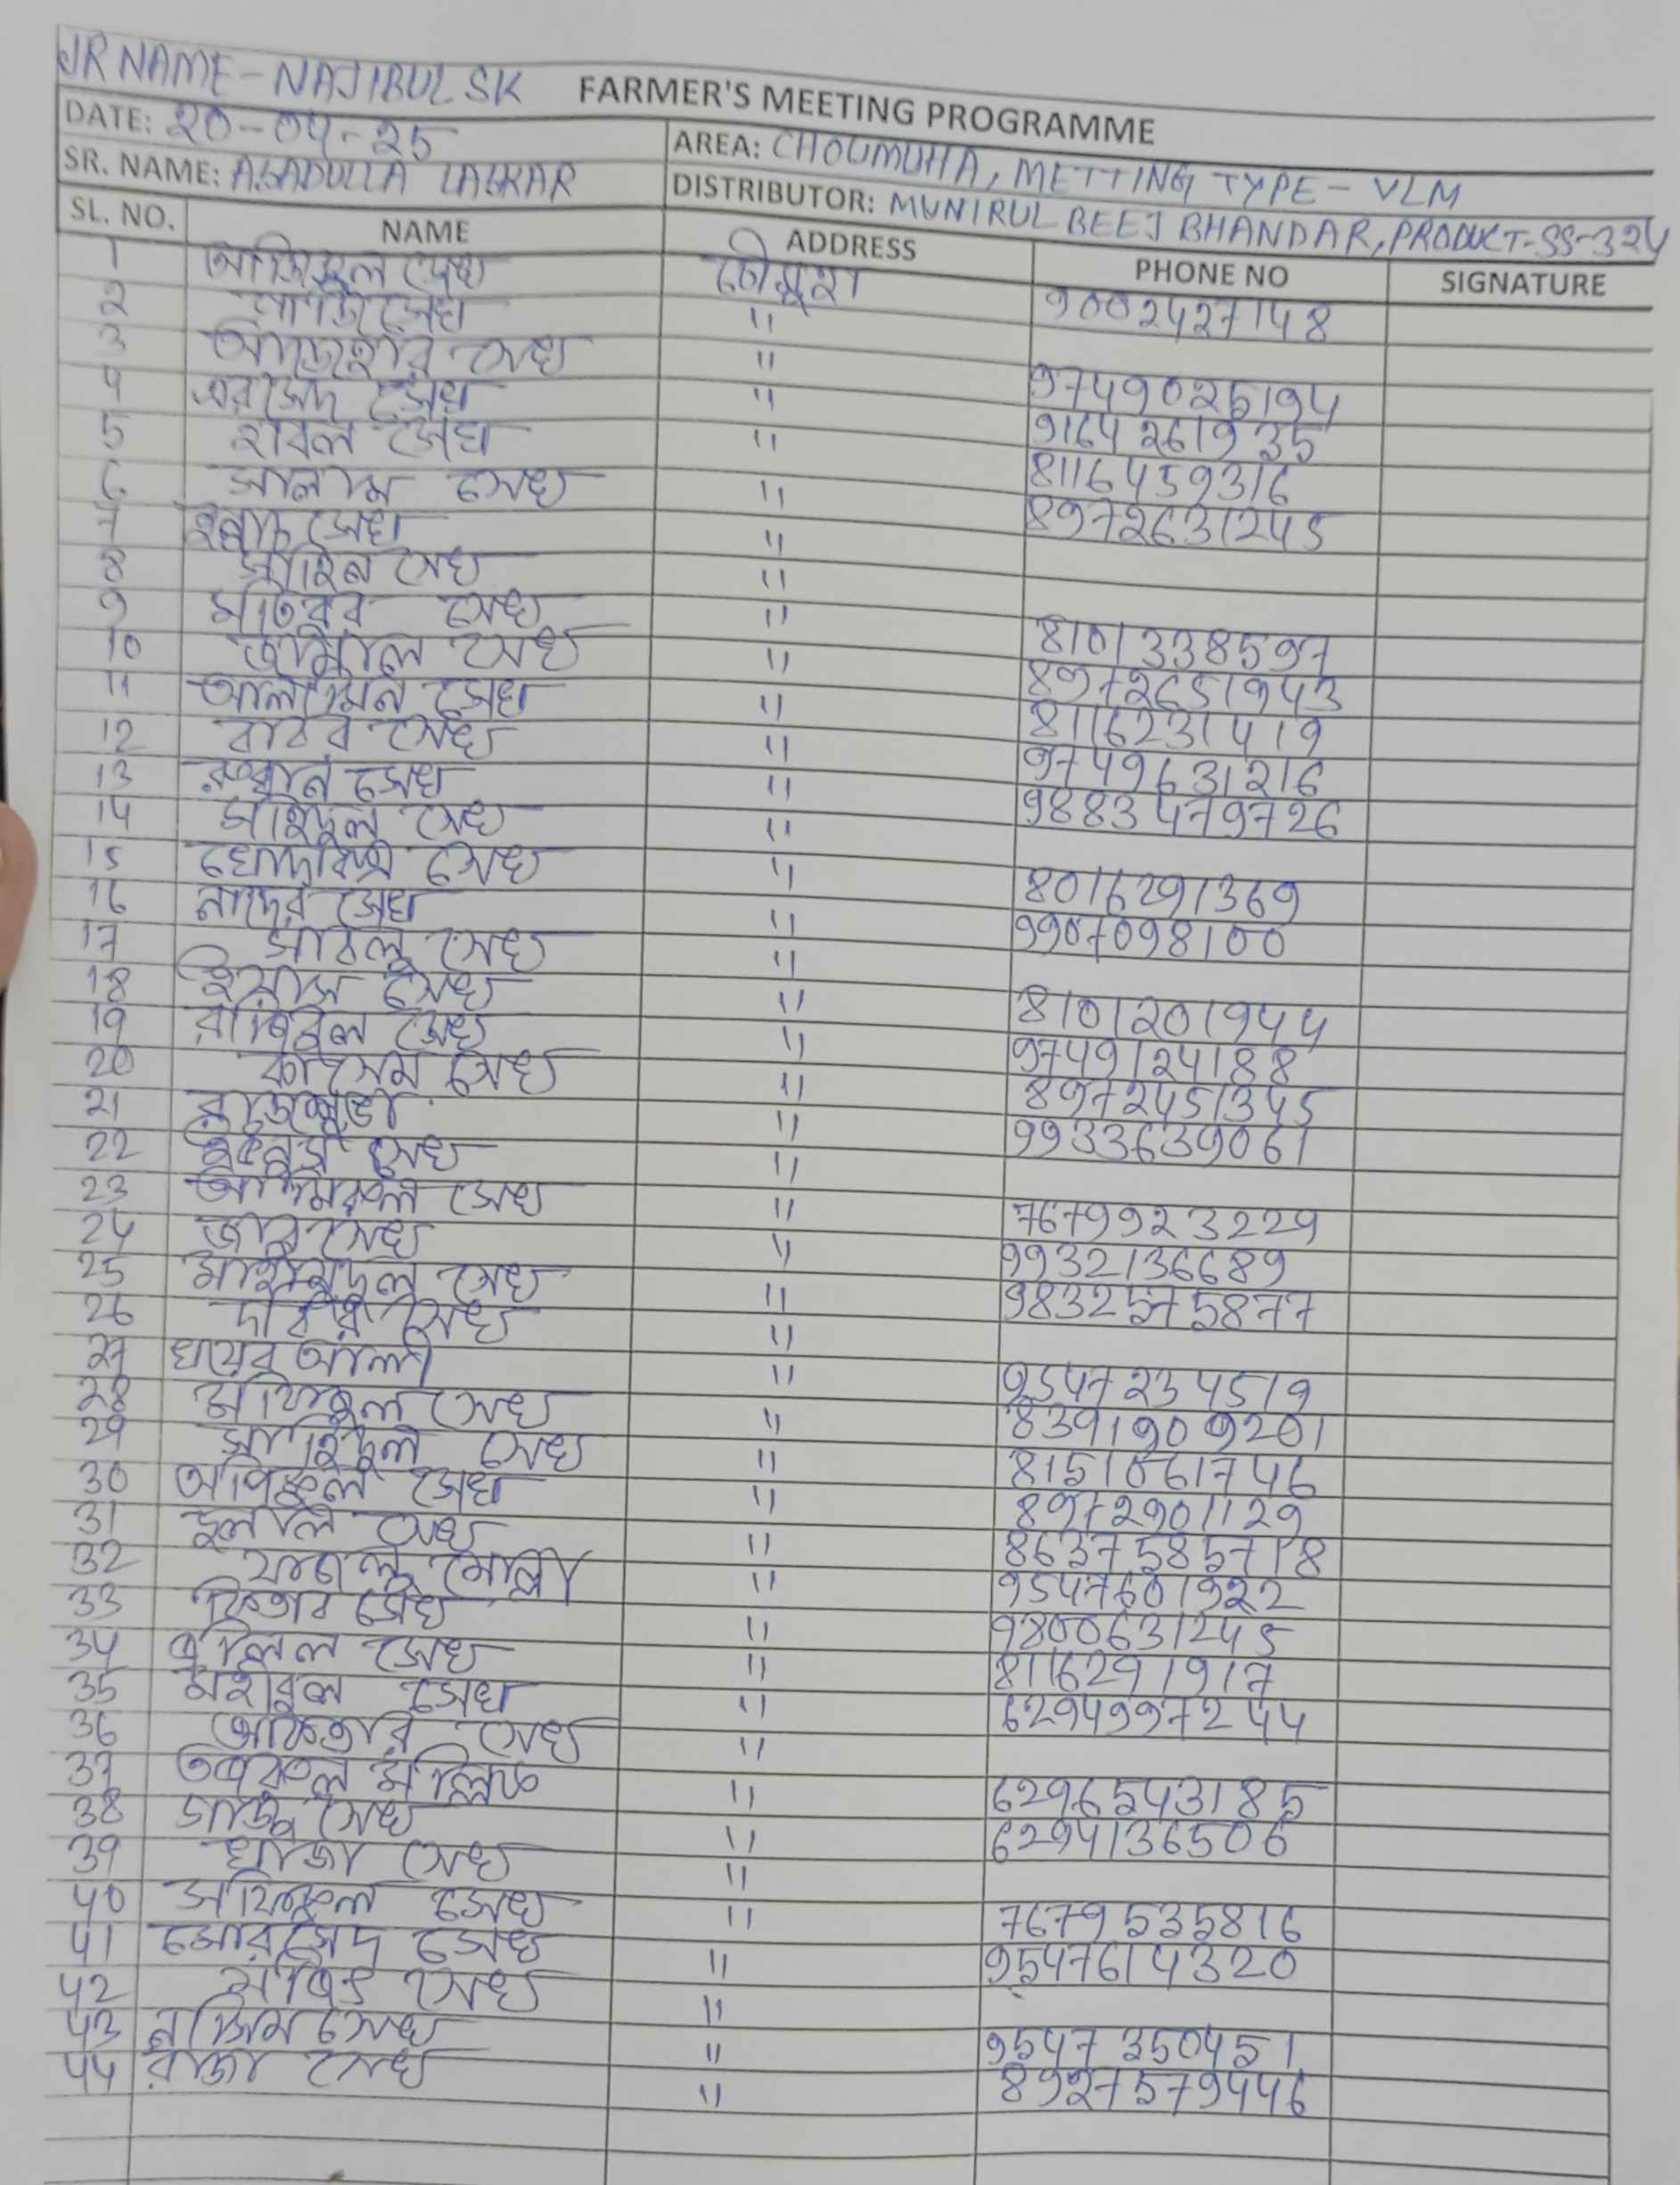 JR NAME - NAJIBUL SK FARMER'S MEETING PROGRAMME
DATE: 20-04-25 AREA: CHOUMUHA, METTING TYPE - VLM
SR. NAME: ASADULLA LASKAR DISTRIBUTOR: MUNIRUL BEEJ BHANDAR, PRODUCT-SS-324
SL. NO. NAME ADDRESS PHONE NO SIGNATURE
1 আজিজুল সেখ চৌমুহা 9002427148
2 সেখ "
3 সেখ " 9749025194
4 এরসেদ সেখ " 9164261935
5 হাবল সেখ " 8116459316
6 সালাম সেখ " 8972631245
7 সেখ "
8 সেখ "
9 মাতবর সেখ " 8101338597
10 জামাল সেখ " 8972651943
11 আলামিন সেখ " 8116231419
12 বাবর সেখ " 9749631216
13 সেখ " 9883479726
14 সাইদুল সেখ "
15 সেখ " 8016291369
16 নাদের সেখ " 9907098100
17 সাবলু সেখ "
18 সেখ " 8101201944
19 রাবিবুল সেখ " 9749124188
20 কাসেম সেখ " 8972451345
21 " 9933639061
22 সেখ "
23 সেখ " 7679923229
24 সেখ " 9932136689
25 সেখ " 9832575877
26 সেখ "
27 খয়ের আলী " 9547234519
28 মফিজুল সেখ " 8391909201
29 সাইদুল সেখ " 8151061746
30 সেখ " 8972901129
31 দুলাল সেখ " 8637585718
32 মোল্লা " 9547601922
33 কিতাব সেখ " 9800631245
34 সেখ " 8116291917
35 মহাবুল সেখ " 6294997244
36 আকতার সেখ "
37 মল্লিক " 6296543185
38 সেখ " 6294136506
39 খাজা সেখ "
40 সফিকুল সেখ " 7679535816
41 মোরসেদ সেখ " 9547614320
42 সেখ "
43 নাজিম সেখ " 9547350451
44 রাজা সেখ " 8927579446